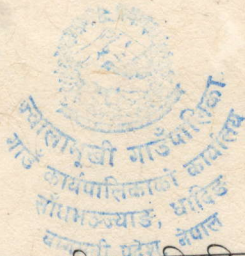 ज्वालामूखी गाउँपालिका
गाउँ कार्यपालिकाको कार्यालय
सोँधभञ्ज्याङ, धादिङ
बागमती प्रदेश नेपाल